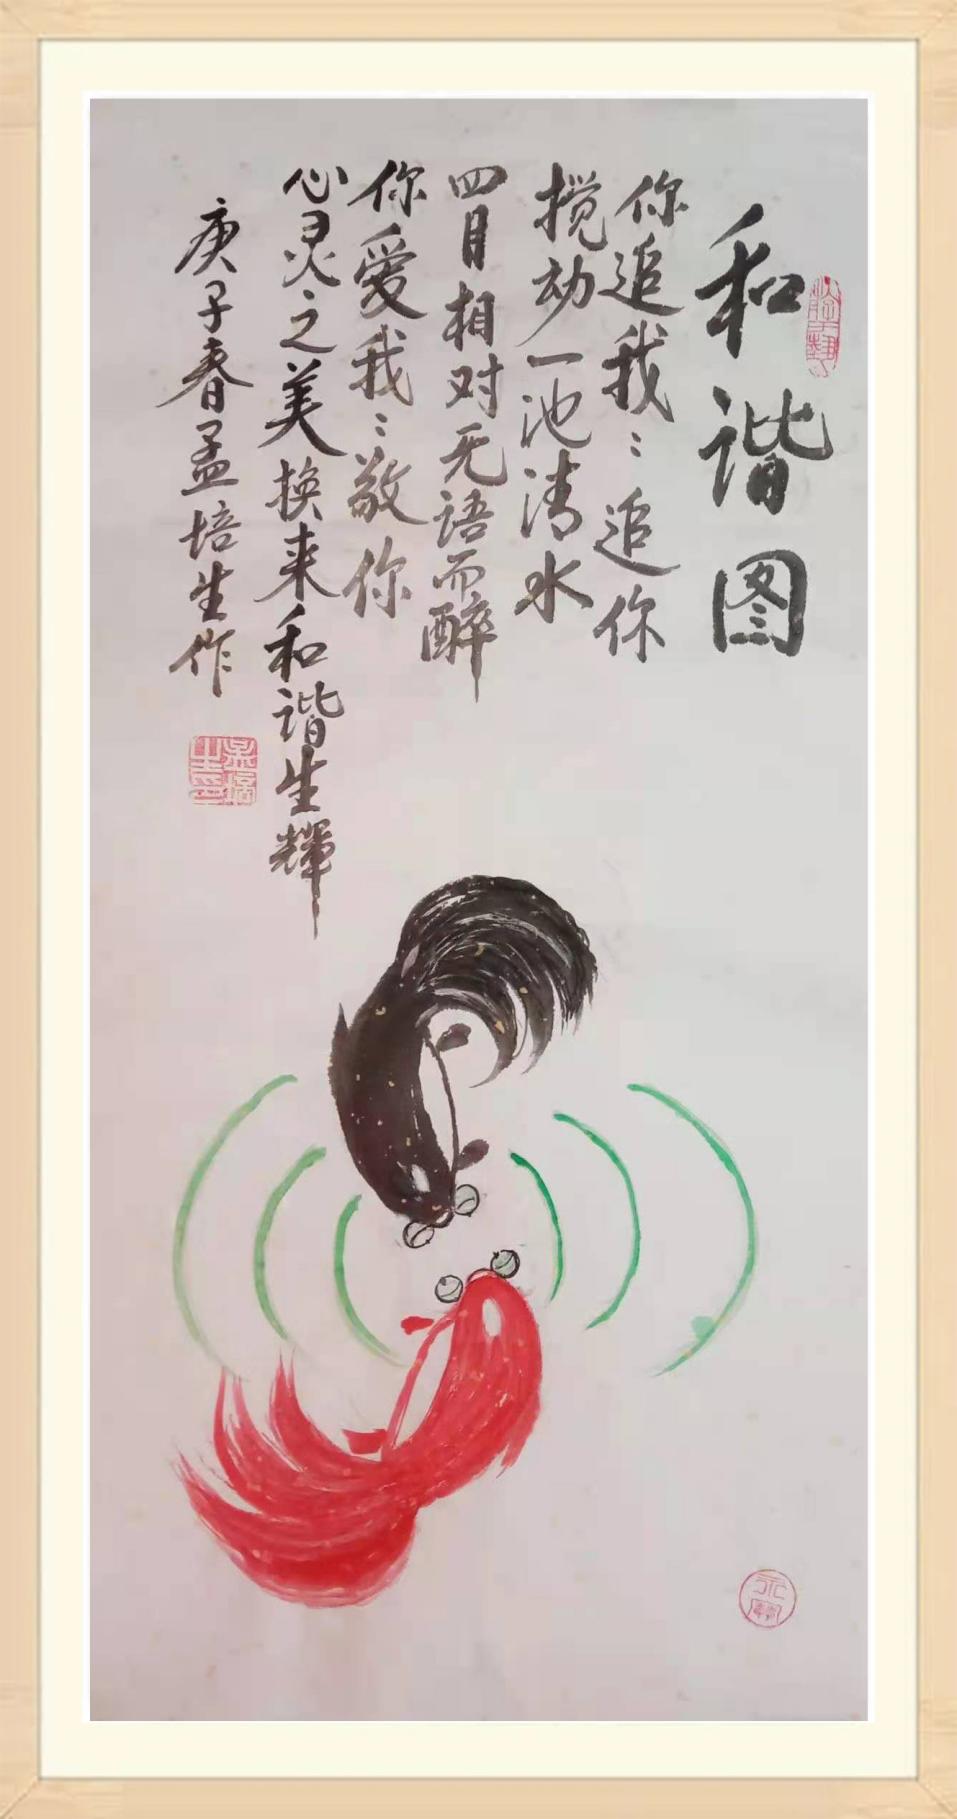 和谐图
你追我〻追你
搅动一池清水
四目相对无语而醉
你爱我〻敬你
心灵之美换来和谐生辉
庚子春孟培生作